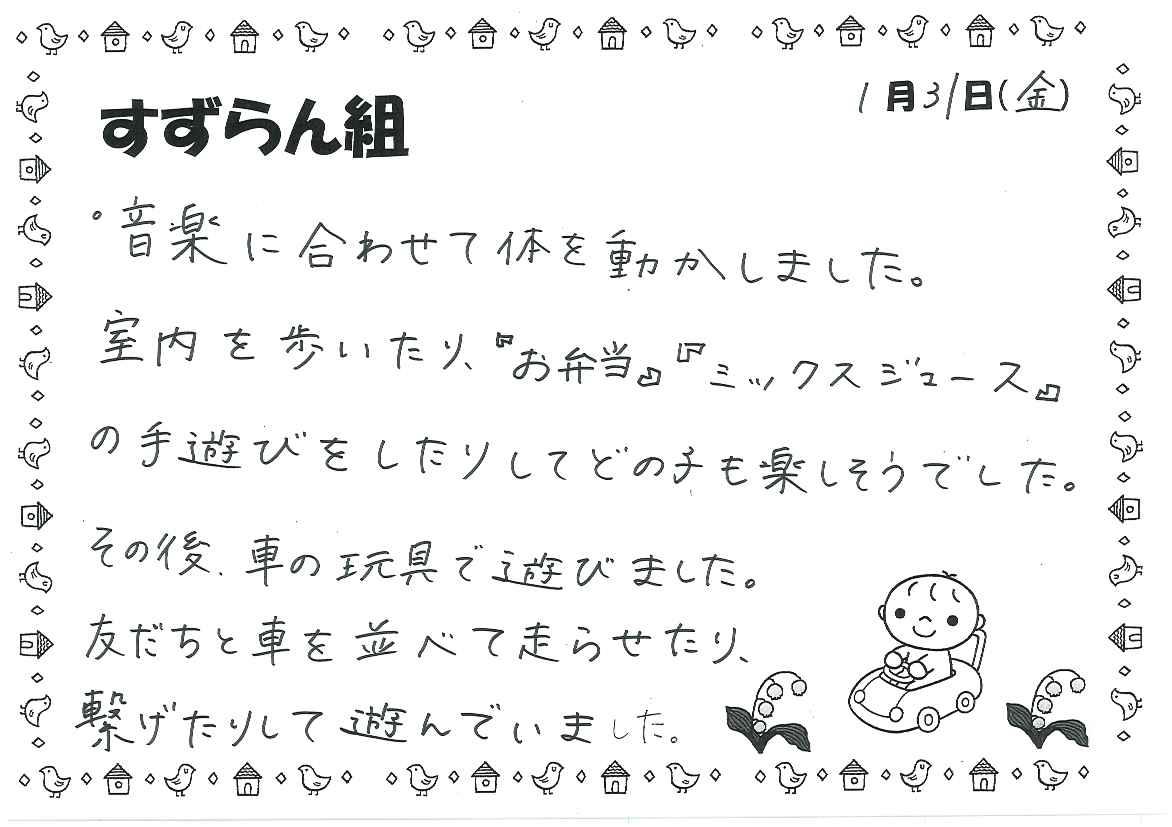 すずらん組
1月31日(金)
・音楽に合わせて体を動かしました。
室内を歩いたり、『お弁当』『ミックスジュース』
の手遊びをしたりしてどの子も楽しそうでした。
その後、車の玩具で遊びました。
友だちと車を並べて走らせたり、
繋げたりして遊んでいました。